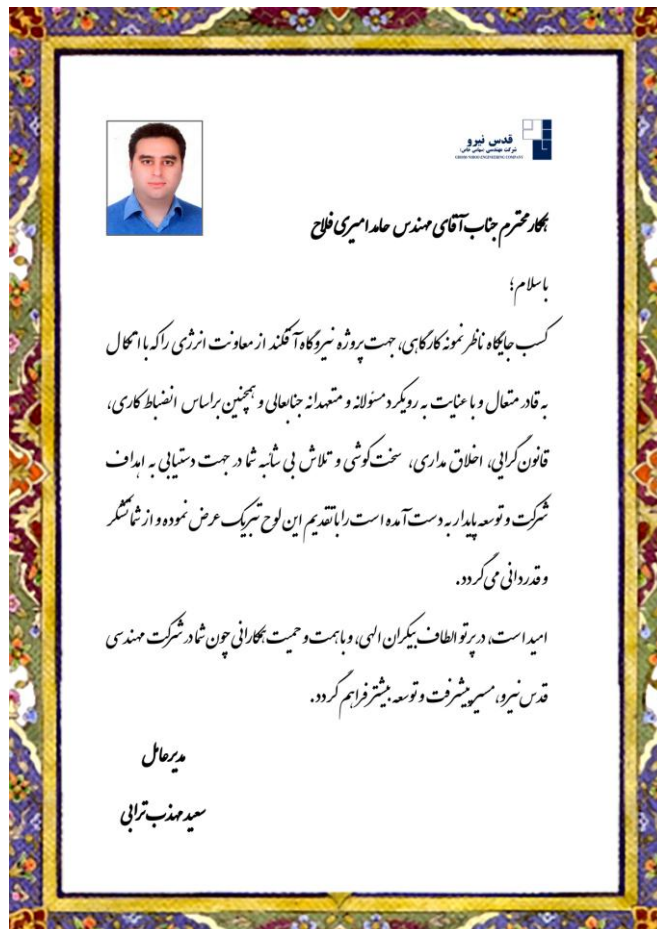 قدس نیرو
شرکت مهندسی (سهامی خاص)
GHODS NIROO ENGINEERING COMPANY
همکار محترم جناب آقای مهندس حامد امیری فلاح
باسلام؛
کسب جایگاه ناظر نمونه کارگاهی، جهت پروژه نیروگاه آفکند از معاونت انرژی را که با اتکال
به قادر متعال و با عنایت به رویکرد مسئولانه و متعهدانه جنابعالی و همچنین براساس انضباط کاری،
قانون گرایی، اخلاق مداری، سخت کوشی و تلاش بی شائبه شما در جهت دستیابی به اهداف
شرکت و توسعه پایدار به دست آمده است را با تقدیم این لوح تبریک عرض نموده و از شما تشکر
و قدردانی می گردد.
امید است، در پرتو الطاف بیکران الهی، و با همت و حمیت همکارانی چون شما در شرکت مهندسی
قدس نیرو، مسیر پیشرفت و توسعه بیشتر فراهم گردد.
مدیرعامل
سعید مهذب ترابی